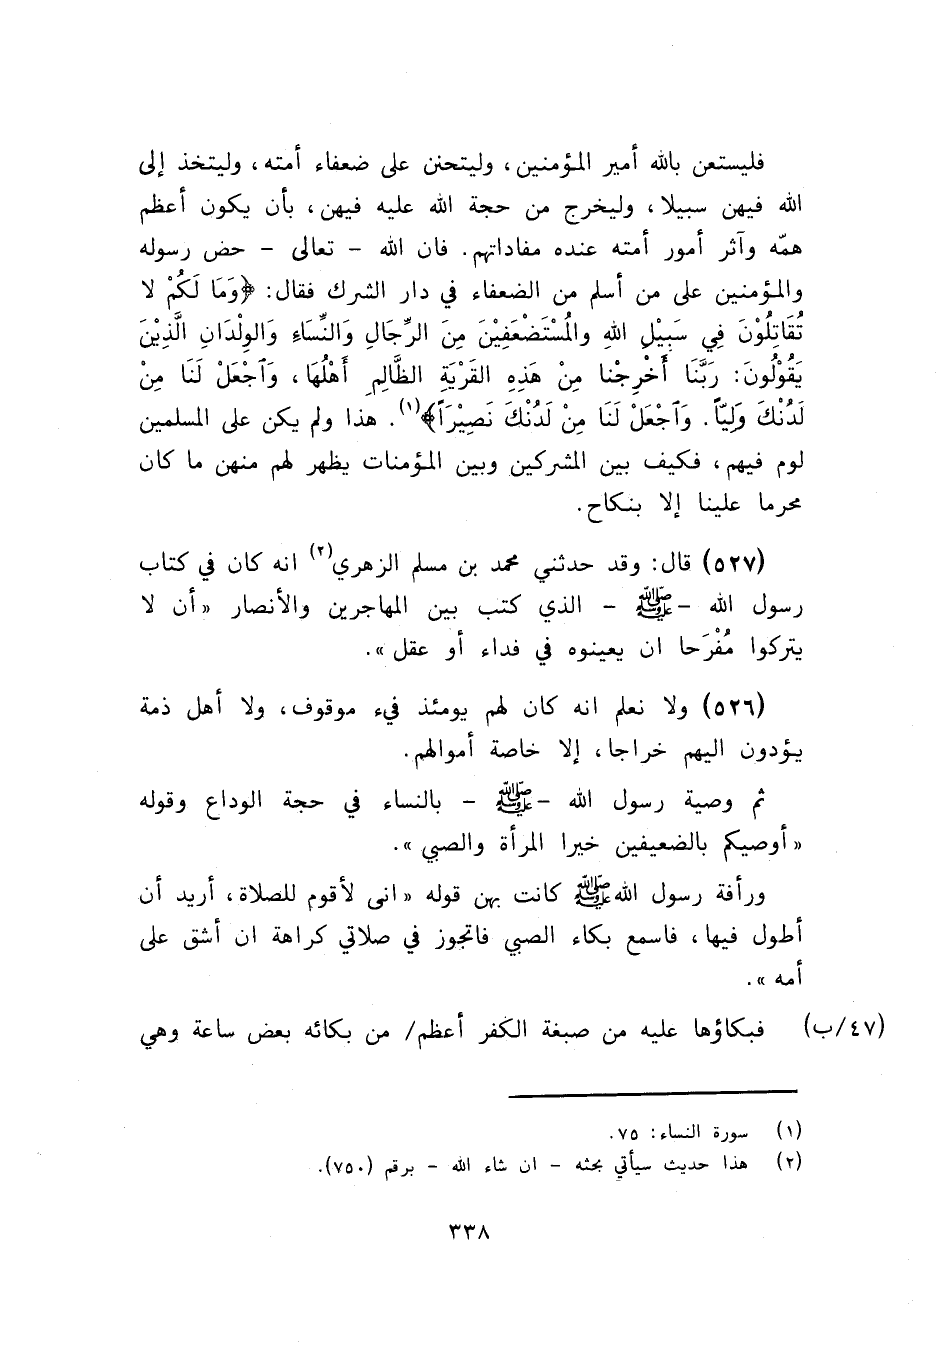 فليستعن بالله أمير المؤمنين، وليتحنن على ضعفاء أمته، وليتخذ إلى
الله فيهن سبيلا، وليخرج من حجة الله عليه فيهن، بأن يكون أعظم
همّه وآثر أمور أمته عنده مفاداتهم. فان الله - تعالى - حض رسوله
والمؤمنين على من أسلم من الضعفاء في دار الشرك فقال: ﴿وَمَا لَكُمْ لا
تُقَاتِلُوْنَ فِي سَبِيْلِ اللهِ والمُسْتَضْعَفِيْنَ مِنَ الرِّجَالِ وَالنِّسَاءِ وَالوِلْدَانِ الَّذِيْنَ
يَقُوْلُونَ: رَبَّنَا أَخْرِجْنا مِنْ هَذِهِ القَرْيَةِ الظَّالِمِ أَهْلُهَا، وَٱجْعَلْ لَنَا مِنْ
لَدُنْكَ وَلِيّاً. وَٱجْعَلْ لَنَا مِنْ لَدُنْكَ نَصِيْرَاً﴾(١). هذا ولم يكن على المسلمين
لوم فيهم، فكيف بين المشركين وبين المؤمنات يظهر لهم منهن ما كان
محرما علينا إلا بنكاح.
(٥٢٧) قال: وقد حدثني محمد بن مسلم الزهري(٢) انه كان في كتاب
رسول الله -ﷺ- الذي كتب بين المهاجرين والأنصار «أن لا
يتركوا مُفْرَحا ان يعينوه في فداء أو عقل».
(٥٢٦) ولا نعلم انه كان لهم يومئذ فيء موقوف، ولا أهل ذمة
يؤدون اليهم خراجا، إلا خاصة أموالهم.
ثم وصية رسول الله -ﷺ- بالنساء في حجة الوداع وقوله
«أوصيكم بالضعيفين خيرا المرأة والصبي».
ورأفة رسول اللهﷺ كانت بهن قوله «انى لأقوم للصلاة، أريد أن
أطول فيها، فاسمع بكاء الصبي فاتجوز في صلاتي كراهة ان أشق على
أمه».
(٤٧/ب) فبكاؤها عليه من صبغة الكفر أعظم/ من بكائه بعض ساعة وهي
(١) سورة النساء: ٧٥.
(٢) هذا حديث سيأتي بحثه - ان شاء الله - برقم (٧٥٠).
٣٣٨